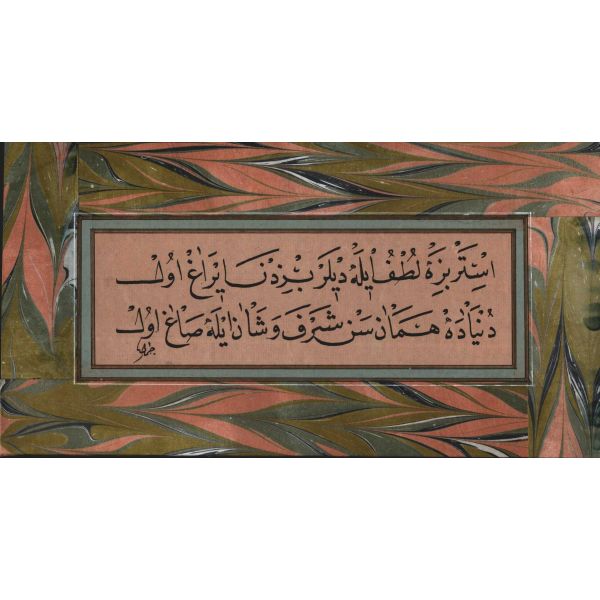 استر بزه لطف ایله دیلر بزدن ایراغ اول
دنیاده همان سن شرف و شان ایله صاغ اول